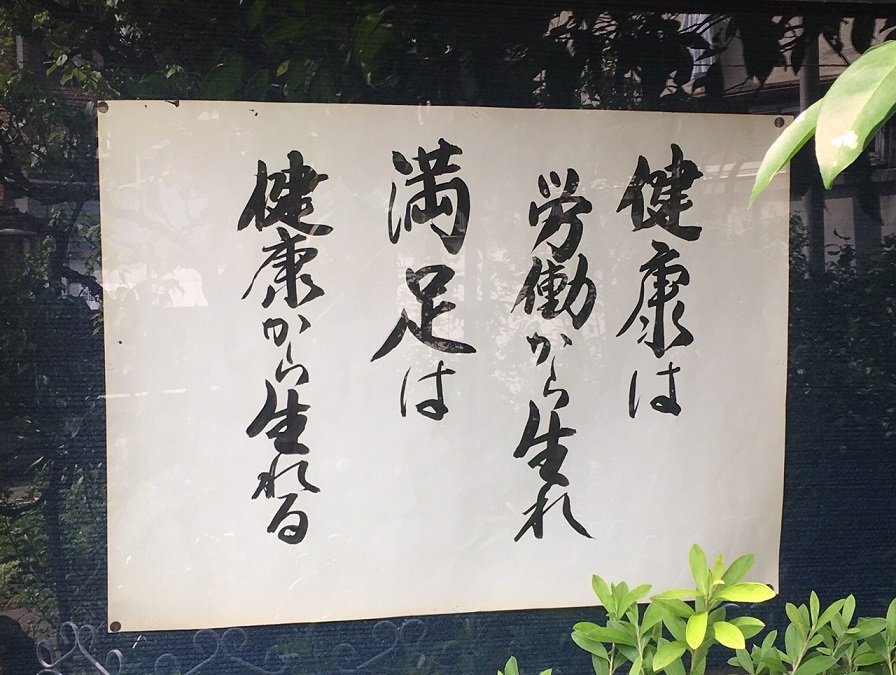 健康は
労働から生れ
満足は
健康から生れる